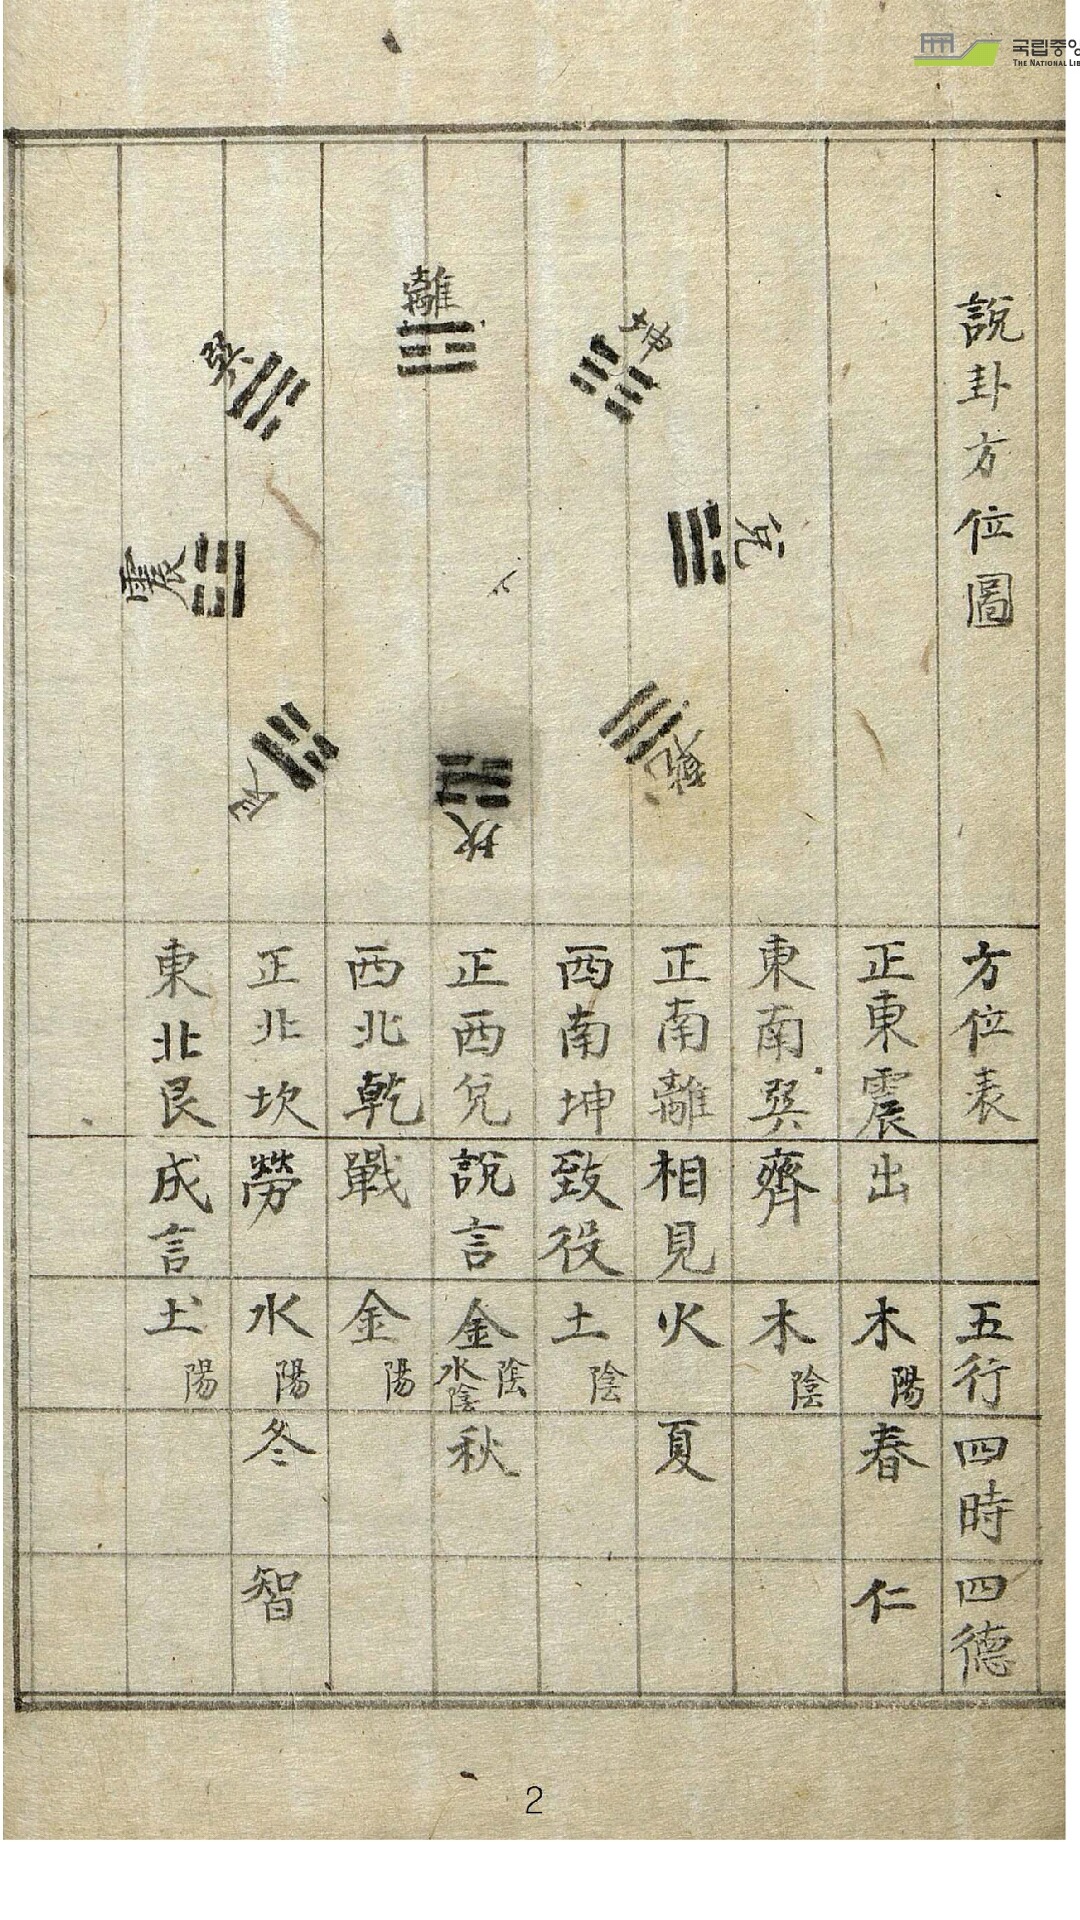 국립중앙
THE NATIONAL LIB
說卦方位圖
離
坤
兌
乾
坎
艮
震
巽
方位表
五行
四時
四德
正東震
出
木陽
春
仁
東南巽
齊
木陰
正南離
相見
火
夏
西南坤
致役
土陰
正西兌
說言
金陰
水陰
秋
西北乾
戰
金陽
正北坎
勞
水陽
冬
智
東北艮
成言
土陽
2